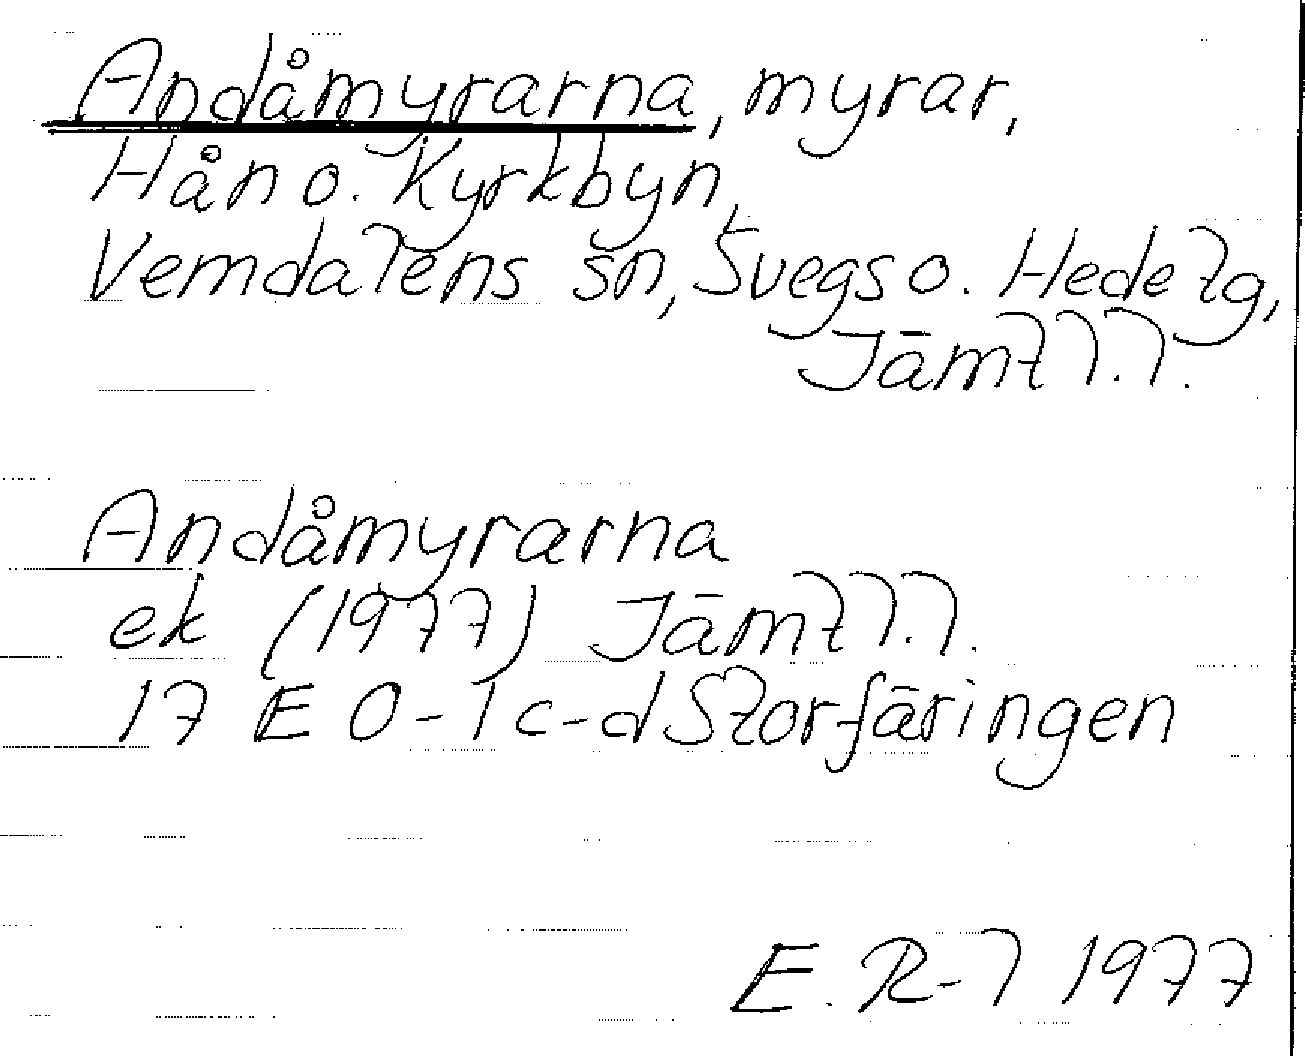 Andåmyrarna, myrar,
Hån o. Kyrkbyn,
Vemdalens sn, Svegs o. Hede tg,
Jämtl.l.
Andåmyrarna
ek (1977) Jämtl.l.
17 E 0-1 c-d Storfäringen
E. R-l 1977